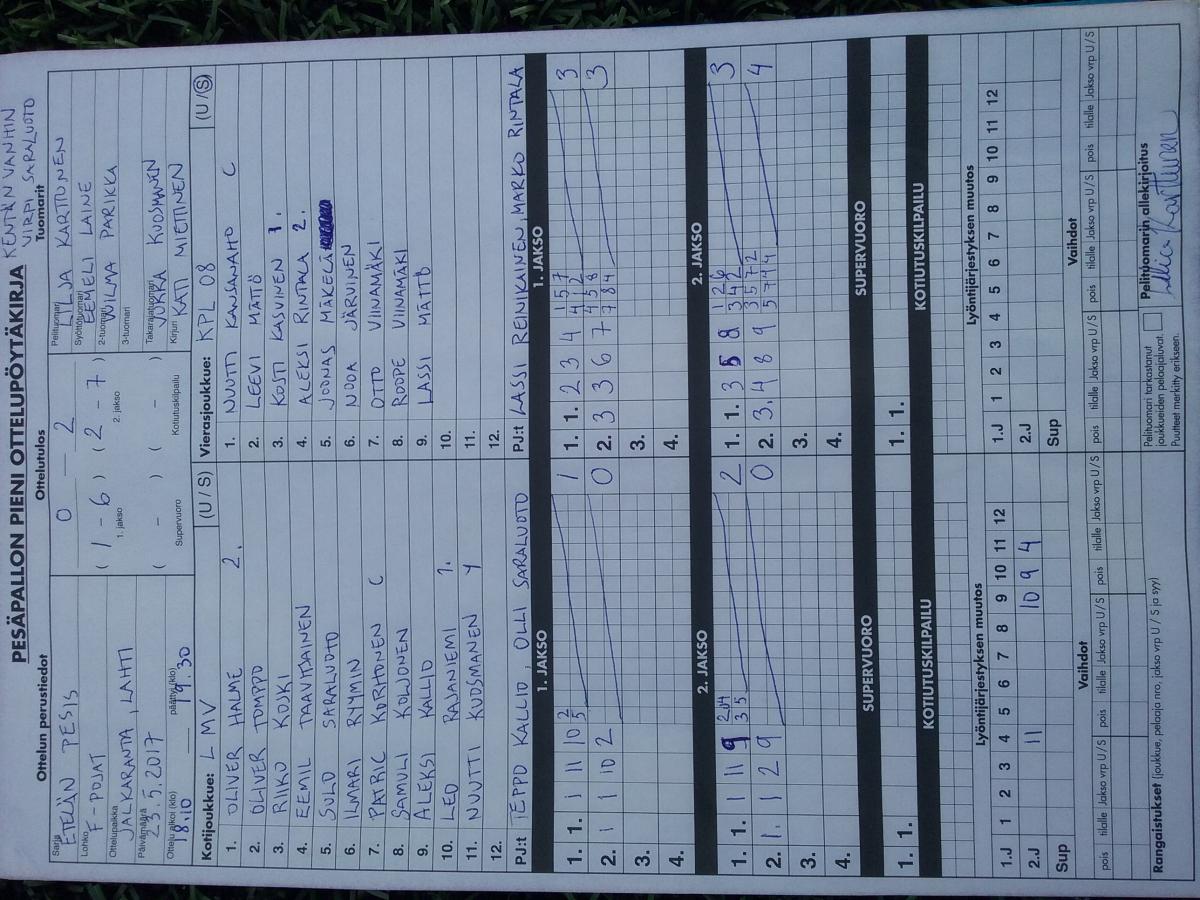 PESÄPALLON PIENI OTTELUPÖYTÄKIRJA
KENTÄN VANHIN
VIRPI SARALUOTO
Ottelun perustiedot
Ottelutulos
Tuomarit
Sarja
ETELÄN PESIS
Lohko
F-POJAT
Ottelupaikka
JALKARANTA, LAHTI
Päivämäärä
23.5.2017
Ottelu alkoi (klo)
18.10
päättyi (klo)
19.30
0 — 2
( 1 - 6 ) ( 2 - 7 )
1. jakso 2. jakso
( - ) ( - )
Supervuoro Kotiutuskilpailu
Pelituomari
LILJA KARTTUNEN
Syöttötuomari
EEMELI LAINE
2-tuomari
WILMA PARIKKA
3-tuomari
Takarajatuomari
JUKKA KUOSMANEN
Kirjuri
KATI MIETTINEN
Kotijoukkue: LMV (U / S)
1. OLIVER HALME 2.
2. OLIVER TOMPPO
3. RIIKO KOUKI
4. EEMIL TAAVITSAINEN
5. SULO SARALUOTO
6. ILMARI RYYMIN
7. PATRIC KORHONEN C
8. SAMULI KOLJONEN
9. ALEKSI KALLIO
10. LEO RAJANIEMI 1.
11. NUUTTI KUOSMANEN Y
12.
PJ:t TEPPO KALLIO, OLLI SARALUOTO
Vierasjoukkue: KPL 08 (U / S)
1. NUUTTI KANSANAHO C
2. LEEVI MÄTIÖ
3. KOSTI KASVINEN 1.
4. ALEKSI RINTALA 2.
5. JOONAS MÄKELÄ
6. NOOA JÄRVINEN
7. OTTO VIINAMÄKI
8. ROOPE VIINAMÄKI
9. LASSI MATTO
10.
11.
12.
PJ:t LASSI REINIKAINEN, MARKO RINTALA
1. JAKSO
1. 1. 1 11 10 2 5 1
2. 1 1 10 2 0
3.
4.
1. JAKSO
1. 1. 2 3 4 3
2. 3 3 6 7 3
3.
4.
2. JAKSO
1. 1. 1 11 9 2
2. 1. 1 2 9 0
3.
4.
2. JAKSO
1. 1. 3 8 3
2. 3. 4 8 9 4
3.
4.
SUPERVUORO
1. 1.
SUPERVUORO
1. 1.
KOTIUTUSKILPAILU
KOTIUTUSKILPAILU
Lyöntijärjestyksen muutos
1.J 1 2 3 4 5 6 7 8 9 10 11 12
2.J 11 10 9 4
Sup
Lyöntijärjestyksen muutos
1.J 1 2 3 4 5 6 7 8 9 10 11 12
2.J
Sup
Vaihdot
pois tilalle Jakso vrp U/S pois tilalle Jakso vrp U/S pois tilalle Jakso vrp U/S
Vaihdot
pois tilalle Jakso vrp U/S pois tilalle Jakso vrp U/S pois tilalle Jakso vrp U/S
Rangaistukset (joukkue, pelaaja nro, jakso vrp U / S ja syy)
Pelituomari tarkastanut
joukkueiden pelaajaluvat.
Puutteet merkitty erikseen.
Pelituomarin allekirjoitus
Lilja Karttunen